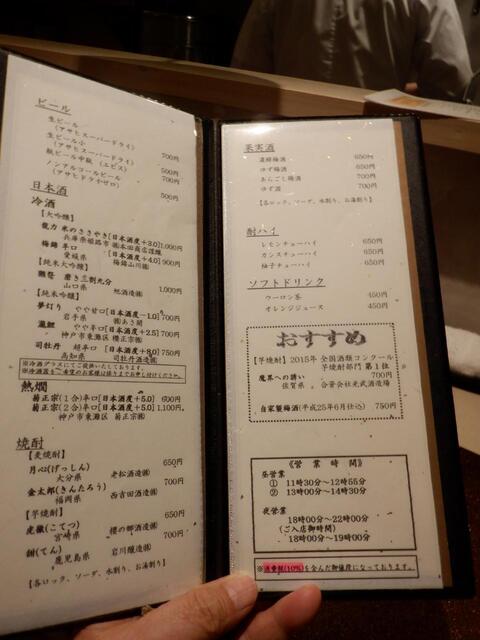 ビール
生ビール
(アサヒスーパードライ) 700円
生ビール小
(アサヒスーパードライ) 500円
瓶ビール中瓶 (エビス) 700円
ノンアルコールビール
(アサヒドライゼロ) 500円
日本酒
冷酒
【大吟醸】
龍力 米のささやき[日本酒度+3.0]1,000円
兵庫県姫路市 ㈱本田商店謹醸
梅錦 辛口 [日本酒度+4.0] 900円
愛媛県 梅錦山川㈱
【純米大吟醸】
獺祭 磨き三割九分 1,000円
山口県 旭酒造㈱
【純米吟醸】
夢灯り やや甘口[日本酒度-1.0]700円
岩手県 ㈱あさ開
瀧鯉 やや辛口[日本酒度+2.5]700円
神戸市東灘区 櫻正宗㈱
司牡丹 超辛口 [日本酒度+8.0]750円
高知県 司牡丹酒造㈱
※冷酒グラスにてご提供いたしております。
※冷酒器をご希望のお客様は係りまでお申し付けください。
熱燗
菊正宗(1合)辛口[日本酒度+5.0] 600円
菊正宗(2合)辛口[日本酒度+5.0]1,100円
神戸市東灘区 菊正宗㈱
焼酎
【麦焼酎】
月心(げっしん) 650円
大分県 老松酒造㈱
金太郎(きんたろう) 700円
福岡県 西吉田酒造㈱
【芋焼酎】
虎徹(こてつ) 650円
宮崎県 櫻の郷酒造㈱
甜(てん) 700円
鹿児島県 岩川醸造㈱
【各ロック、ソーダ、水割り、お湯割り】
果実酒
濃醇梅酒 650円
ゆず梅酒 650円
あらごし梅酒 700円
ゆず酒 700円
【各ロック、ソーダ、水割り、お湯割り】
酎ハイ
レモンチューハイ 650円
カシスチューハイ 650円
柚子チューハイ 650円
ソフトドリンク
ウーロン茶 450円
オレンジジュース 450円
おすすめ
【芋焼酎】2015年 全国酒類コンクール
芋焼酎部門 第1位
魔界への誘い 700円
佐賀県 合資会社光武酒造場
自家製梅酒(平成25年6月仕込) 750円
《営業時間》
昼営業
① 11時30分～12時55分
② 13時00分～14時30分
夜営業
18時00分～22時00分
(ご入店御時間)
18時00分～19時00分
※消費税(10%)を含んだ御値段になっております。